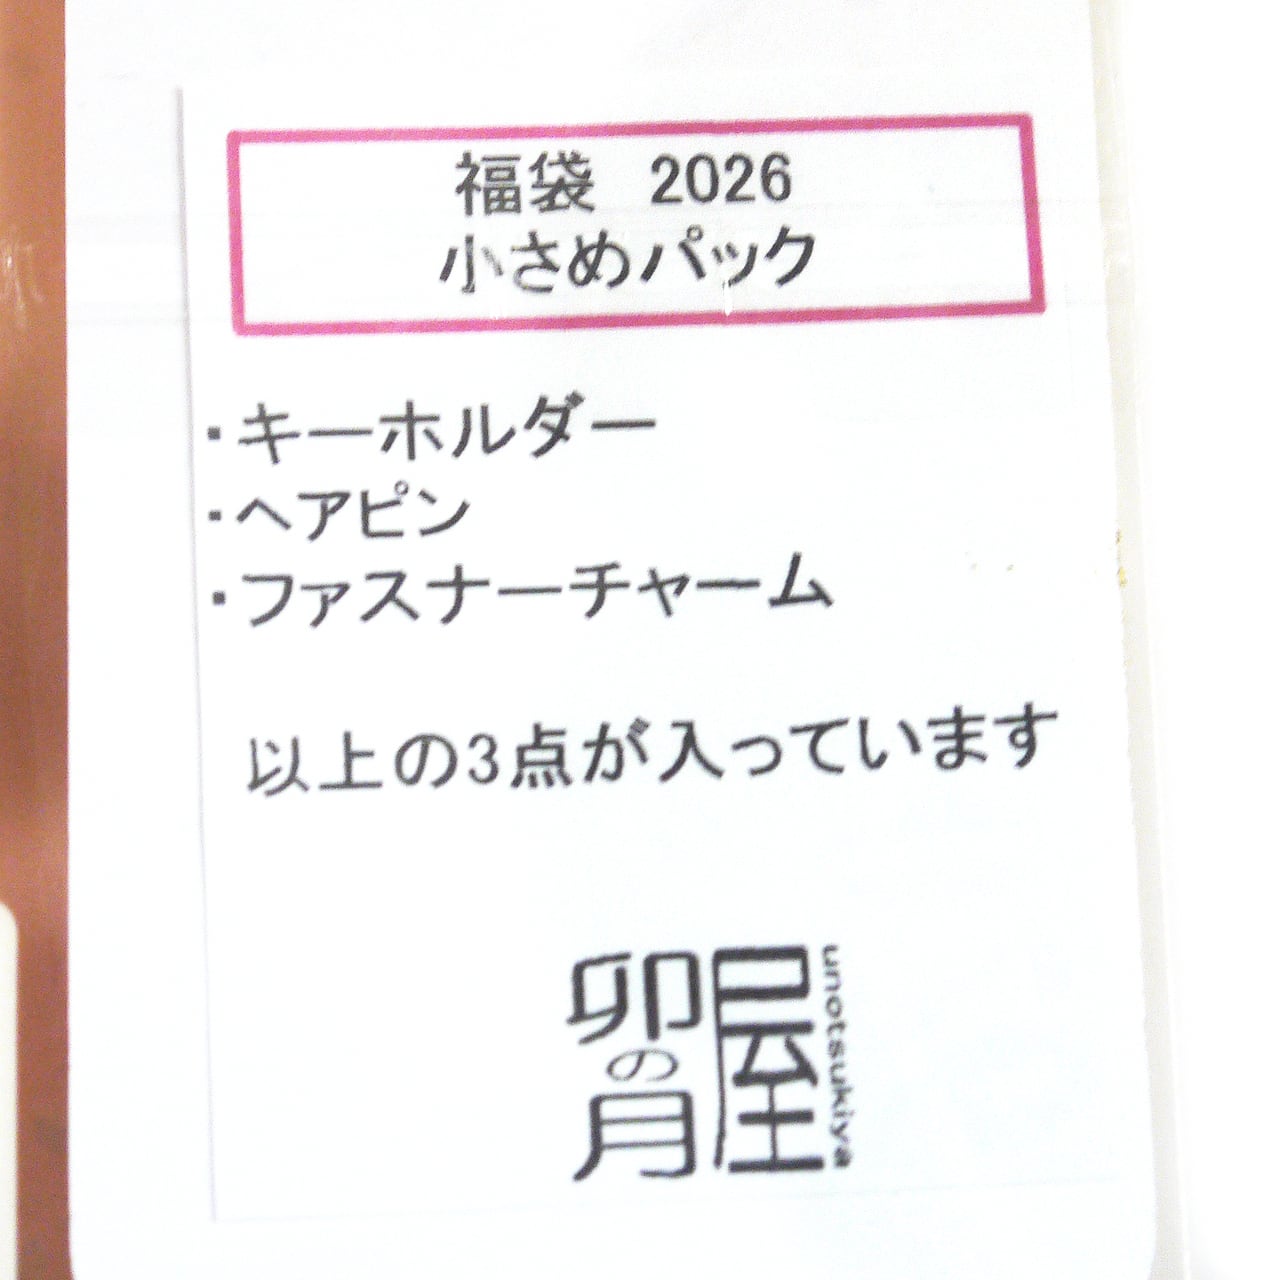 福袋　2026
小さめパック
・キーホルダー
・ヘアピン
・ファスナーチャーム
以上の3点が入っています
卯の月屋
unotsukiya